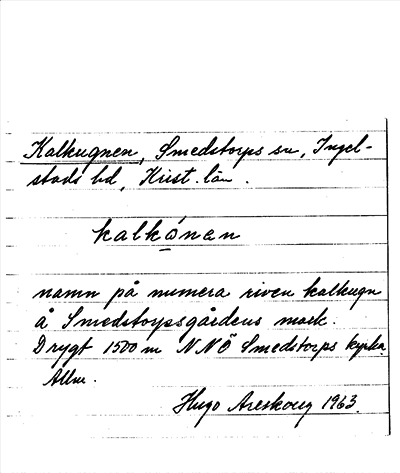 Kalkugnen, Smedstorps sn, Ingel-
stads hd, Krist. län.
kalkọ́nan
namn på numera riven kalkugn
å Smedstorpsgårdens mark.
Drygt 1500 m NNÖ Smedstorps kyrka.
Allm.
Hugo Areskoug 1963.